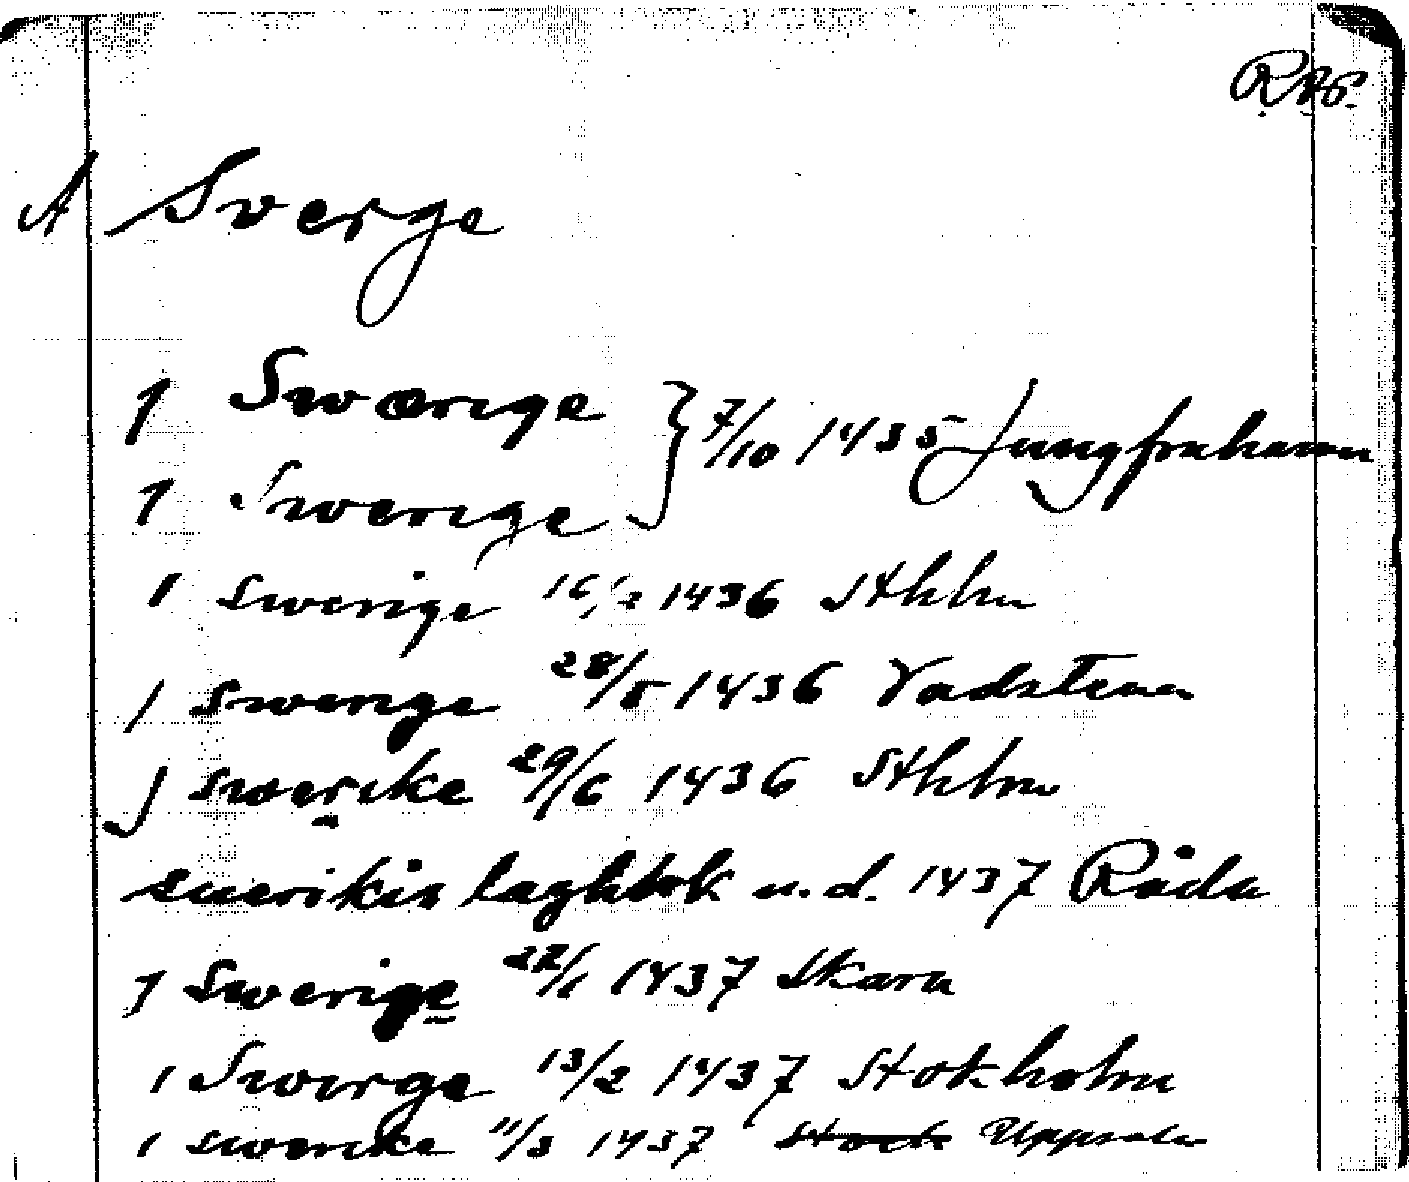 A Sverge
1 Swærige } 7/10 1435 Jungfruhamn
1 Swerige
1 Swerige 16/2 1436 Sthlm
1 Swerige 28/8 1436 Vadstena
j swerike 29/6 1436 Sthlm
suerikis laghbok u.d. 1437 Råda
j Swerige 22/1 1437 Skara
1 Swerge 13/2 1437 Stokholm
1 swerike 11/3 1437 Stock Uppsala